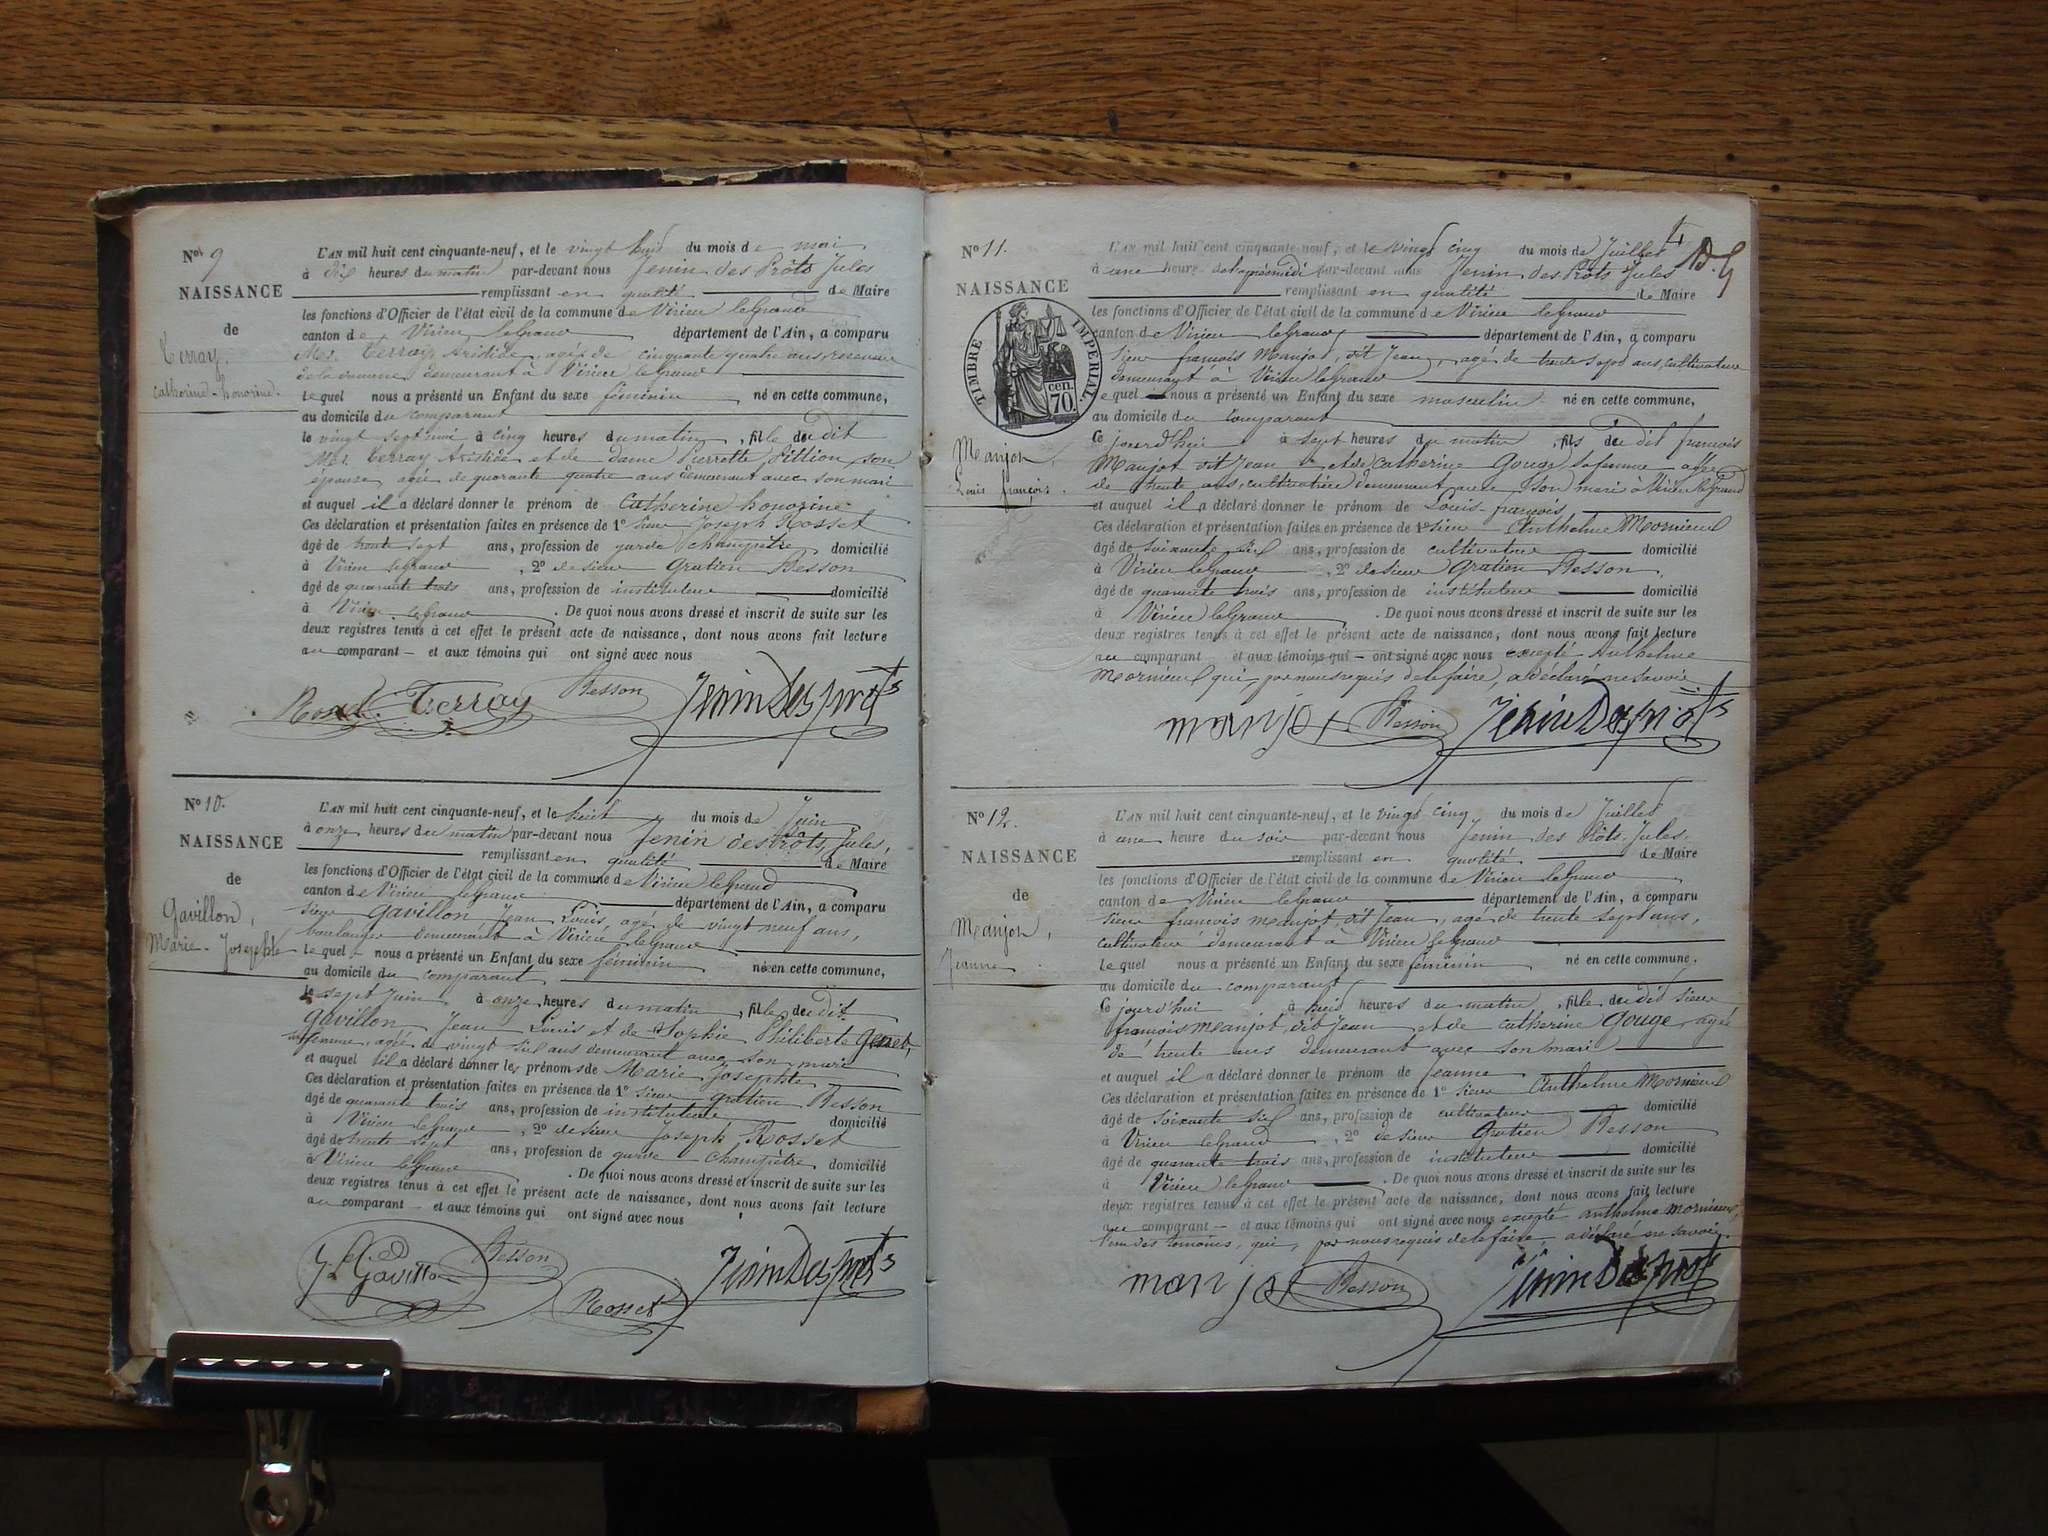 No 9
NAISSANCE
de
Terray.
Catherine-honorine.
L'AN mil huit cent cinquante-neuf, et le vingt huit du mois de mai
à dix heures du matin par-devant nous Jenin des Prôts Jules
remplissant en qualité de Maire
les fonctions d'Officier de l'état civil de la commune de Virieu le Grand
canton de Virieu le Grand département de l'Ain, a comparu
Mr. Terray Aristide, agé de cinquante quatre ans, receveur
de la domaine, demeurant à Virieu le Grand
Lequel nous a présenté un Enfant du sexe féminin né en cette commune,
au domicile du comparant
le vingt sept mai à cinq heures du matin, fille du dit
Mr. Terray Aristide et de dame Pierrette Pillion, son
épouse, agée de quarante quatre ans demeurant avec son mari
et auquel il a déclaré donner le prénom de Catherine honorine
Ces déclaration et présentation faites en présence de 1° sieur Joseph Rosset
âgé de trente sept ans, profession de garde champêtre domicilié
à Virieu le Grand, 2° de sieur Gratien Besson
âgé de quarante trois ans, profession de instituteur domicilié
à Virieu le Grand. De quoi nous avons dressé et inscrit de suite sur les
deux registres tenus à cet effet le présent acte de naissance, dont nous avons fait lecture
au comparant et aux témoins qui ont signé avec nous
Rosset Terray Besson Jenin Des prôts
No 10.
NAISSANCE
de
Gavillon,
Marie-Josephte
L'AN mil huit cent cinquante-neuf, et le huit du mois de Juin
à onze heures du matin par-devant nous Jenin des Prôts, Jules,
remplissant en qualité de Maire
les fonctions d'Officier de l'état civil de la commune de Virieu le Grand
canton de Virieu le Grand département de l'Ain, a comparu
sieur Gavillon Jean Louis, agé de vingt neuf ans,
boulanger demeurant à Virieu le Grand
Lequel nous a présenté un Enfant du sexe féminin né en cette commune,
au domicile du comparant
le sept Juin à onze heures du matin, fille du dit
Gavillon Jean Louis et de Sophie Philiberte Genet,
sa femme, agée de vingt six ans demeurant avec son mari
et auquel il a déclaré donner les prénoms de Marie Josephte
Ces déclaration et présentation faites en présence de 1° sieur Gratien Besson
âgé de quarante trois ans, profession de instituteur domicilié
à Virieu le Grand, 2° de sieur Joseph Rosset
âgé de trente sept ans, profession de garde champêtre domicilié
à Virieu le Grand. De quoi nous avons dressé et inscrit de suite sur les
deux registres tenus à cet effet le présent acte de naissance, dont nous avons fait lecture
au comparant et aux témoins qui ont signé avec nous
J. L. Gavillon Besson Rosset Jenin Des prôts
4
No 11.
NAISSANCE
TIMBRE IMPERIAL.
70 cen.
Manjot,
Louis françois.
L'AN mil huit cent cinquante-neuf, et le vingt cinq du mois de Juillet
à une heure de l'aprèsmidi par-devant nous Jenin des Prôts Jules
remplissant en qualité de Maire
les fonctions d'Officier de l'état civil de la commune de Virieu le Grand
canton de Virieu le Grand département de l'Ain, a comparu
sieur françois Manjot, dit Jean, agé de trente sept ans, cultivateur
demeurant à Virieu le Grand
Lequel nous a présenté un Enfant du sexe masculin né en cette commune,
au domicile du comparant
Ce jourd'hui à sept heures du matin, fils du dit françois
Manjot dit Jean et de Catherine Gouge, sa femme agée
de trente ans, cultivatrice demeurant avec son mari à Virieu le Grand
et auquel il a déclaré donner le prénom de Louis-françois
Ces déclaration et présentation faites en présence de 1° sieur Anthelme Mornieux
âgé de soixante six ans, profession de cultivateur domicilié
à Virieu le Grand, 2° de sieur Gratien Besson,
âgé de quarante trois ans, profession de instituteur domicilié
à Virieu le Grand. De quoi nous avons dressé et inscrit de suite sur les
deux registres tenus à cet effet le présent acte de naissance, dont nous avons fait lecture
au comparant et aux témoins qui ont signé avec nous excepté Anthelme
Mornieux qui, par nous requis de le faire, a déclaré ne savoir
manjot Besson Jenin Des prôts
No 12.
NAISSANCE
de
Manjot,
Jeanne.
L'AN mil huit cent cinquante-neuf, et le vingt cinq du mois de Juillet
à une heure du soir par-devant nous Jenin des Prôts, Jules,
remplissant en qualité de Maire
les fonctions d'Officier de l'état civil de la commune de Virieu le Grand
canton de Virieu le Grand département de l'Ain, a comparu
sieur françois Manjot, dit Jean, agé de trente sept ans,
cultivateur demeurant à Virieu le Grand
Lequel nous a présenté un Enfant du sexe féminin né en cette commune,
au domicile du comparant
Ce jourd'hui à huit heures du matin, fille du dit sieur
françois Manjot, dit Jean et de Catherine Gouge, agée
de trente ans demeurant avec son mari
et auquel il a déclaré donner le prénom de Jeanne
Ces déclaration et présentation faites en présence de 1° sieur Anthelme Mornieux
âgé de soixante six ans, profession de cultivateur domicilié
à Virieu le Grand, 2° de sieur Gratien Besson
âgé de quarante trois ans, profession de instituteur domicilié
à Virieu le Grand. De quoi nous avons dressé et inscrit de suite sur les
deux registres tenus à cet effet le présent acte de naissance, dont nous avons fait lecture
au comparant et aux témoins qui ont signé avec nous excepté anthelme mornieux,
l'un des témoins, qui, par nous requis de le faire, a déclaré ne savoir.
manjot Besson Jenin Des prôts